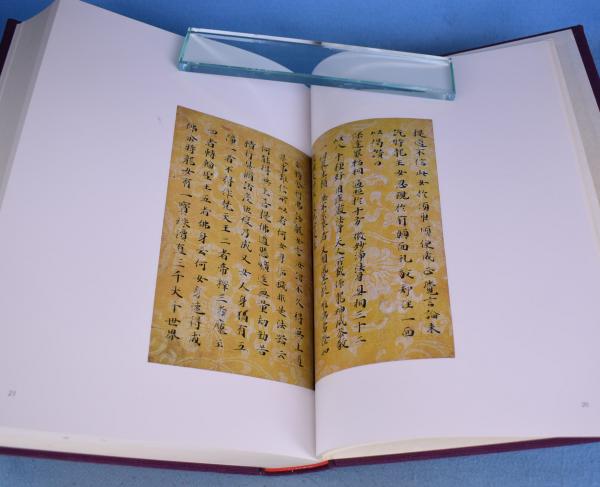 提道不信此女於須臾頃便成正覺言論未
訖時龍王女忽現於前頭面禮敬却住一面
以偈讚曰
深達罪福相遍照於十方微妙淨法身具相三十二
以八十種好用莊嚴法身天人所戴仰龍神咸恭敬
時舍利弗語龍女言汝謂不久得無上道
是事難信所以者何女身垢穢非是法器云
何能得無上菩提佛道懸曠逕無量劫勤苦
積行具修諸度然後乃成又女人身猶有五
障一者不得作梵天王二者帝釋三者魔王
四者轉輪聖王五者佛身云何女身速得成
佛尒時龍女有一寶珠價直三千大千世界